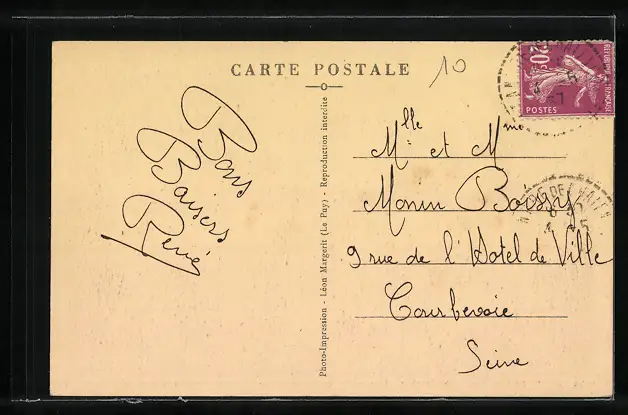 CARTE POSTALE
10
20c
REPUBLIQUE FRANÇAISE
POSTES
Bons
Baisers
René
Photo-Impression - Léon Margerit (Le Puy) - Reproduction interdite
Mlle et Mme
Boissy
9 rue de l'Hotel de Ville
Courbevoie
Seine